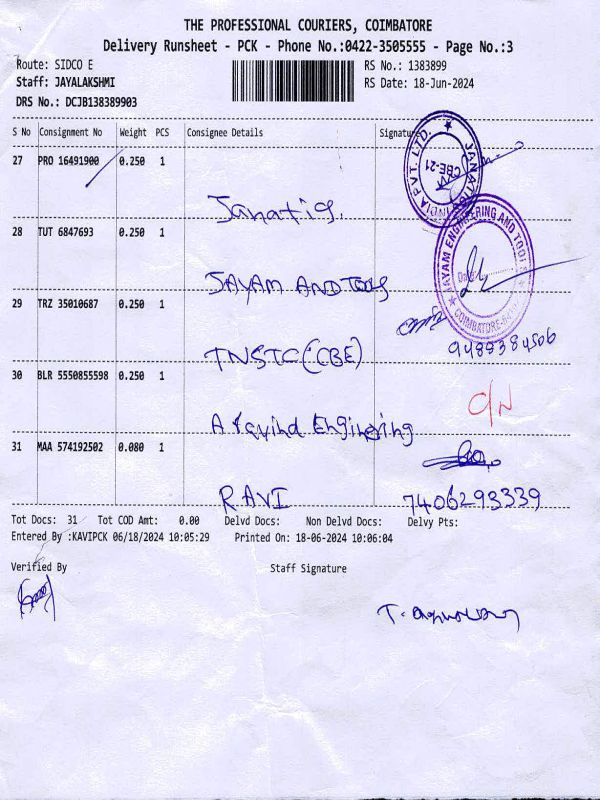 THE PROFESSIONAL COURIERS, COIMBATORE
Delivery Runsheet - PCK - Phone No.:0422-3505555 - Page No.:3
Route: SIDCO E RS No.: 1383899
Staff: JAYALAKSHMI RS Date: 18-Jun-2024
DRS No.: DCJB138389903
S No Consignment No Weight PCS Consignee Details Signature
27 PRO 16491900 0.250 1
Janatig.
JANATICS INDIA PVT. LTD.
CBE-21
28 TUT 6847693 0.250 1
JAYAM AND TOOLS
JAYAM ENGINEERING AND TOOLS
COIMBATORE
29 TRZ 35010687 0.250 1
TNSTC (CBE) 9488384506
30 BLR 5550855598 0.250 1
Aravind Engineering
31 MAA 574192502 0.080 1
RAVI 7406293339
Tot Docs: 31 Tot COD Amt: 0.00 Delvd Docs: Non Delvd Docs: Delvy Pts:
Entered By :KAVIPCK 06/18/2024 10:05:29 Printed On: 18-06-2024 10:06:04
Verified By Staff Signature